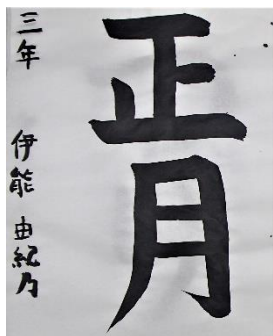 正月
三年 伊能 由紀乃